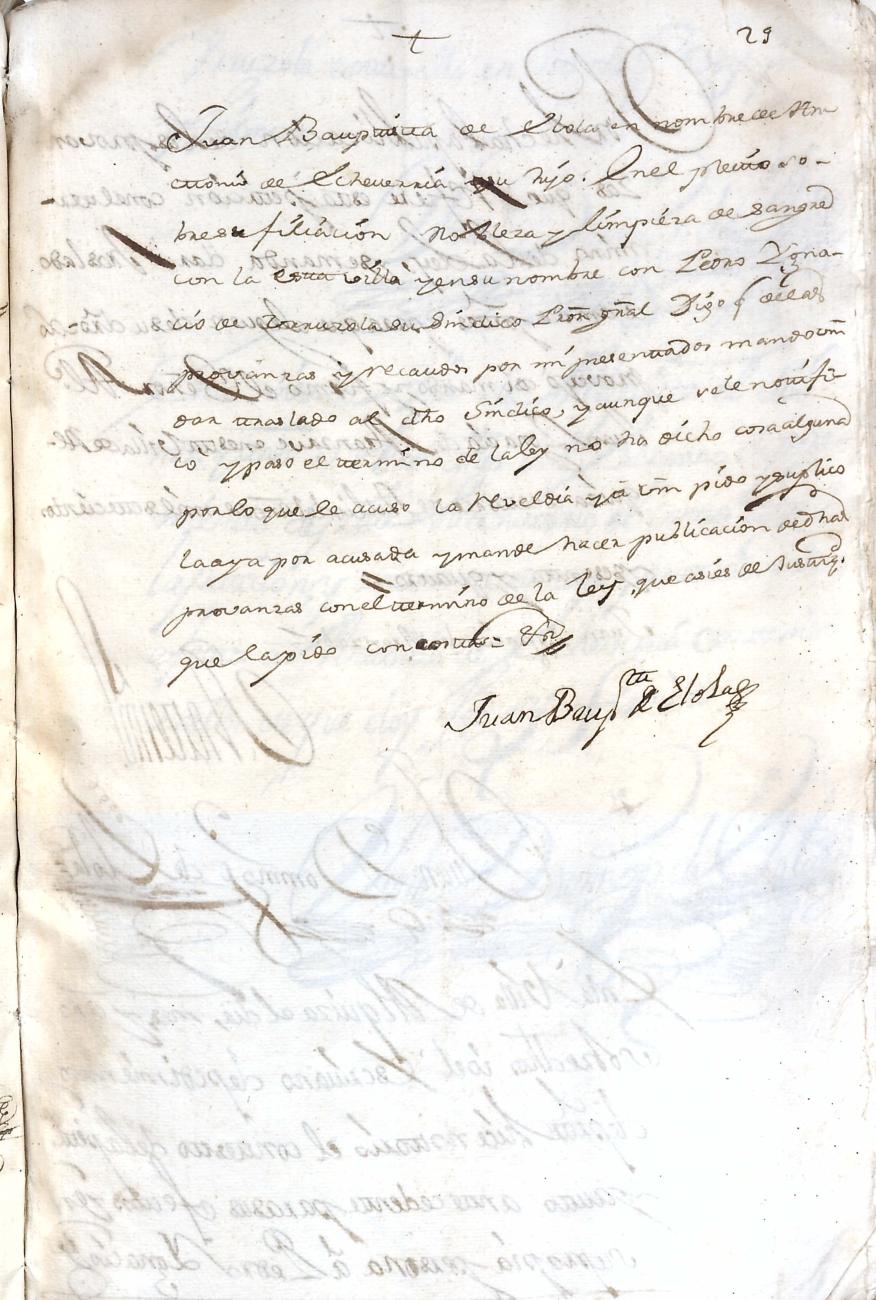 +
29
Juan Bauptista de Elola, en nombre de An-
ttonio de Echeverria, y su hijo. En el pleito so-
bre su filiación Nobleza y limpieza de sangre
con la estta villa y en su nombre con Pedro Ygna-
cio de su Síndico Prōr gñal Digo q̃ de las
provanzas y recaudos por mi presenttados mando vm̃
dar ttraslado al dho Síndico, y aunque se le nottifi-
co y paso el ttermino de la ley no ha dicho cosa alguna
por lo que le acuso la Reveldia y a vm̃ pido y suplico
la aya por acusada y mande hacer publicación de dhas
provanzas con el ttermino de la ley, que asi es de Justtiª.
que la pido con costtas = &ª
Juan Bauptta de Elola